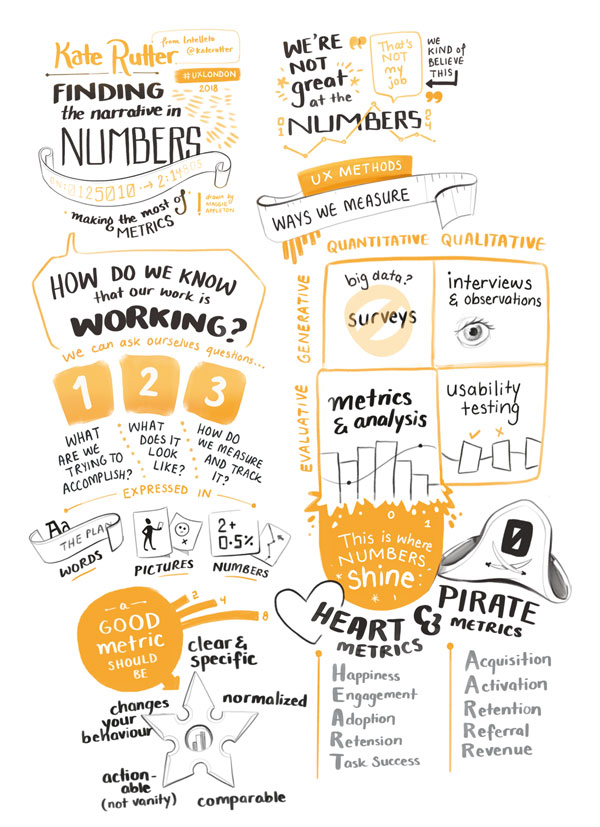 Kate Rutter
from Intelleto
@katerutter
#UXLONDON
2018
FINDING
the narrative in
NUMBERS
0125010
making the most of
METRICS
drawn by
MAGGIE
APPLETON
WE'RE
NOT
great
at the
NUMBERS
That's
NOT
my
job
WE
KIND of
BELIEVE
THIS
HOW DO WE KNOW
that our work is
WORKING?
We can ask ourselves questions...
1 2 3
WHAT
ARE WE
TRYING TO
ACCOMPLISH?
WHAT
DOES IT
LOOK
LIKE?
HOW DO
WE MEASURE
AND TRACK
IT?
EXPRESSED IN
Aa
THE PLAN
WORDS
PICTURES
2+
0.5%
NUMBERS
a
GOOD
metric
SHOULD
BE
2
4
8
clear &
specific
normalized
comparable
action-
able
(not vanity)
changes
your
behaviour
UX METHODS
WAYS WE MEASURE
QUANTITATIVE QUALITATIVE
GENERATIVE
big data?
surveys
interviews
& observations
EVALUATIVE
metrics
& analysis
usability
testing
0 1
This is where
NUMBERS
shine:
1
HEART
METRICS
&
0
PIRATE
METRICS
Happiness
Engagement
Adoption
Retension
Task Success
Acquisition
Activation
Retention
Referral
Revenue